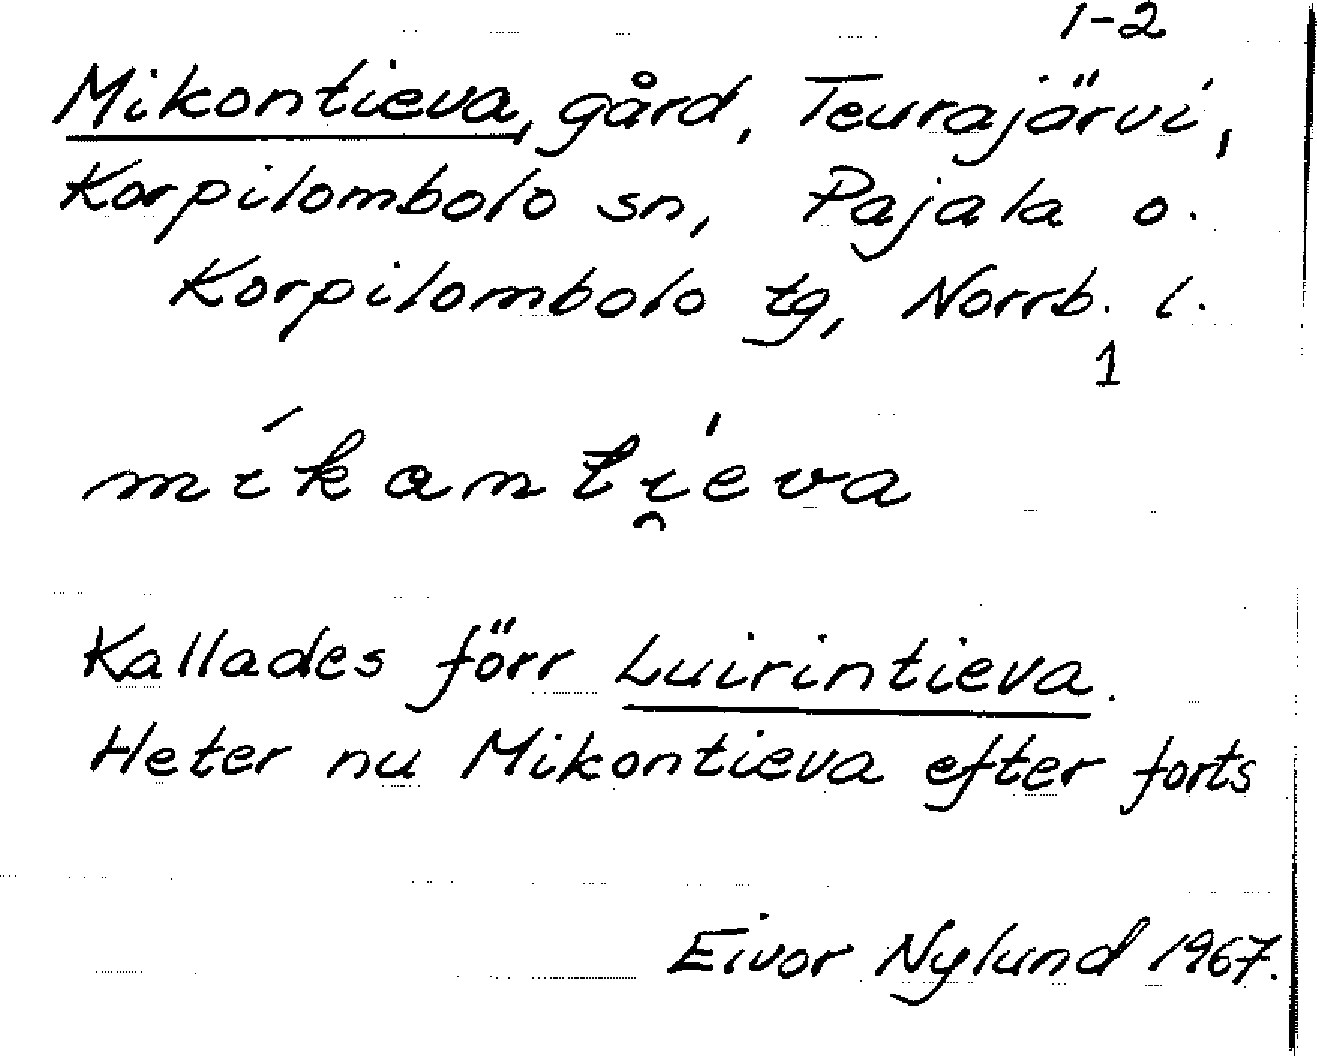 1-2
Mikontieva, gård, Teurajärvi,
Korpilombolo sn, Pajala o.
Korpilombolo tg, Norrb. l.
1
míkanti̯éva
Kallades förr Luirintieva.
Heter nu Mikontieva efter forts
Eivor Nylund 1967.